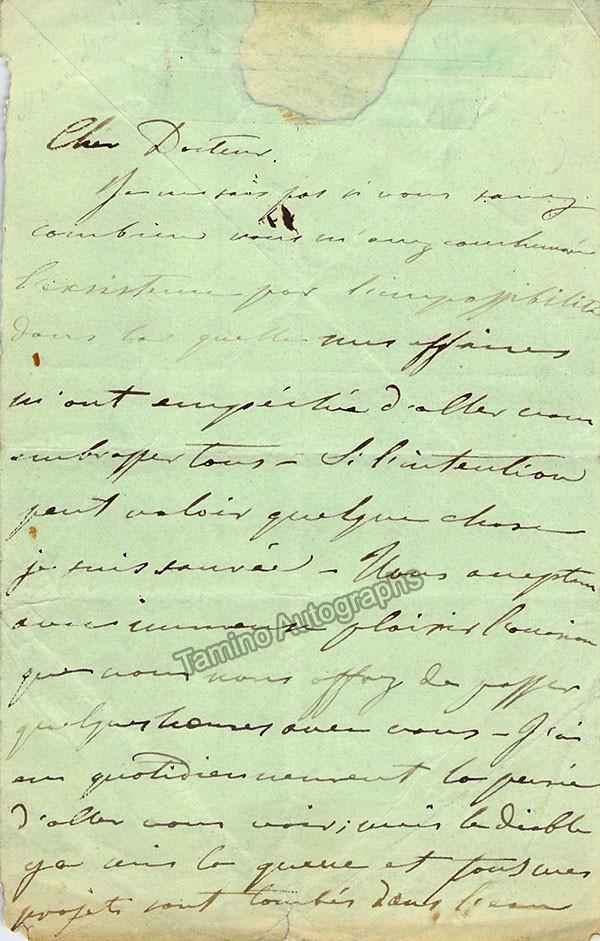 Cher Docteur.
Je ne sais pas si vous savez
combien vous m'avez
l'existence par l'impossibilité
dans la quelle mes affaires
m'ont empéchée d'aller vous
embrasser tous – Si l'intention
peut valoir quelque chose
je suis sauvée – Nous acceptons
avec immense plaisir l'occasion
que vous nous offrez de passer
quelques heures avec vous – J'ai
eu quotidiennement la pensée
d'aller vous voir; mais le diable
y a mis la queue et tous mes
projets sont tombés dans l'eau
Tamino Autographs